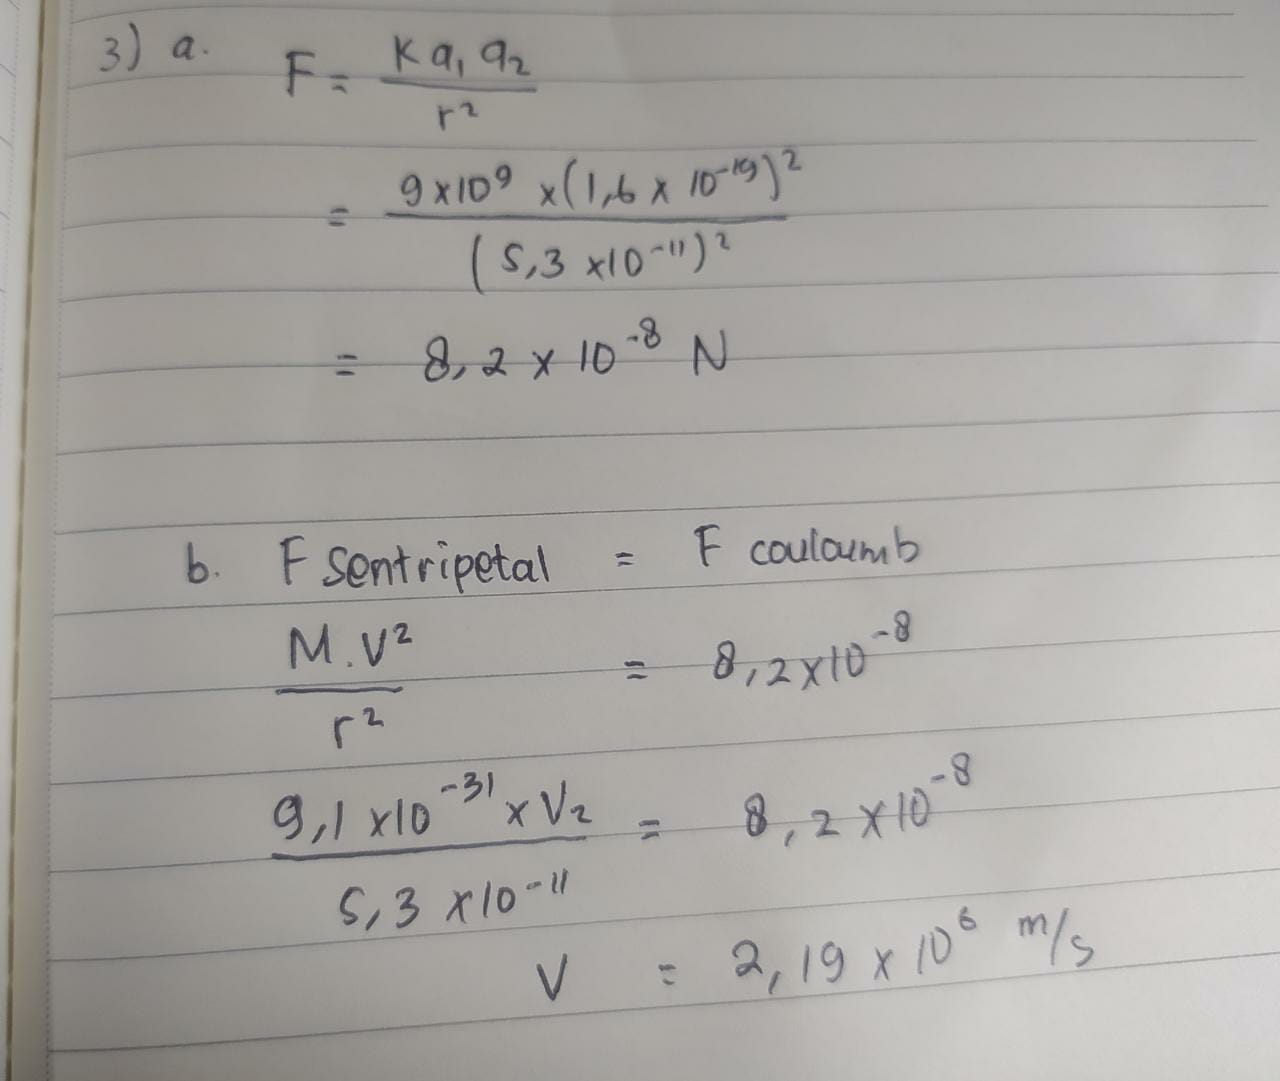 3) a. F = K q₁ q₂ / r²
= 9 x 10⁹ x (1,6 x 10⁻¹⁹)² / (5,3 x 10⁻¹¹)²
= 8,2 x 10⁻⁸ N
b. F sentripetal = F couloumb
M . V² / r² = 8,2 x 10⁻⁸
9,1 x 10⁻³¹ x V₂ / 5,3 x 10⁻¹¹ = 8,2 x 10⁻⁸
V = 2,19 x 10⁶ m/s